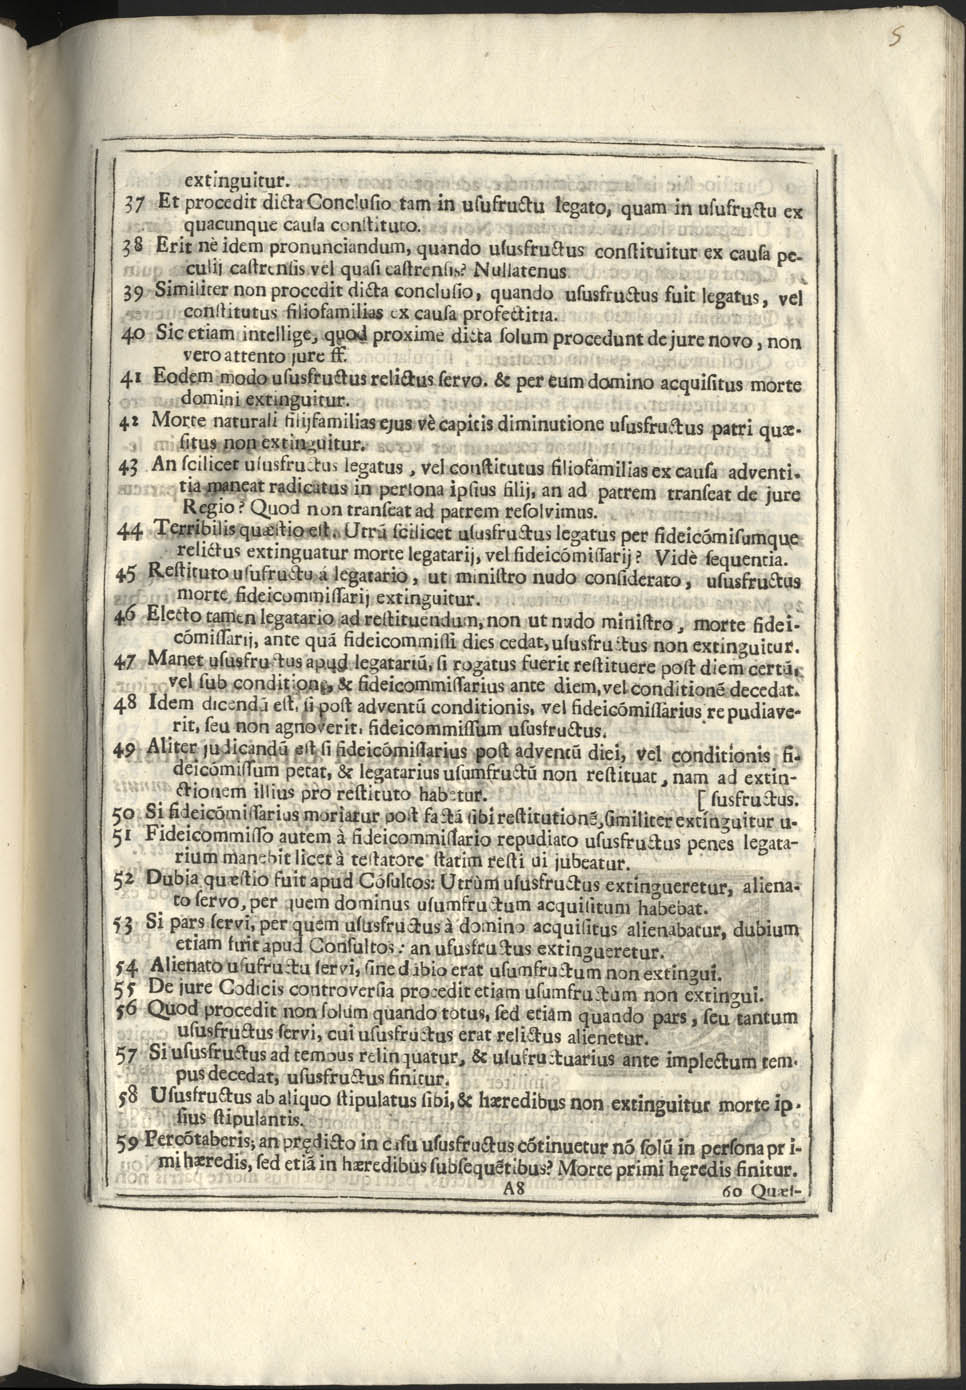 5
extinguitur.
37 Et procedit dicta Conclusio tam in usufructu legato, quam in usufructu ex
quacunque causa constituto.
38 Erit nè idem pronunciandum, quando ususfructus constituitur ex causa pe-
culij castrensis vel quasi castrensis? Nullatenus
39 Similiter non procedit dicta conclusio, quando ususfructus fuit legatus, vel
constitutus filiofamilias ex causa profectitia.
40 Sic etiam intellige, quod proxime dicta solum procedunt de jure novo, non
vero attento jure ff.
41 Eodem modo ususfructus relictus servo. & per eum domino acquisitus morte
domini extinguitur.
42 Morte naturali filijfamilias ejus vè capitis diminutione ususfructus patri quæ-
situs non extinguitur.
43 An scilicet ususfructus legatus, vel constitutus filiofamilias ex causa adventi-
tia maneat radicatus in persona ipsius filij, an ad patrem transeat de jure
Regio? Quod non transeat ad patrem resolvimus.
44 Terribilis quæstio est. Utrũ scilicet ususfructus legatus per fideicõmisumque
relictus extinguatur morte legatarij, vel fideicõmissarij? Vidè sequentia.
45 Restituto usufructu á legatario, ut ministro nudo considerato, ususfructus
morte fideicommissarij extinguitur.
46 Electo tamen legatario ad restituendum, non ut nudo ministro, morte fidei-
cõmissarij, ante quã fideicommissi dies cedat, ususfructus non extinguitur.
47 Manet ususfructus apud legatariũ, si rogatus fuerit restituere post diem certũ,
vel sub conditione, & fideicommissarius ante diem, vel conditionẽ decedat.
48 Idem dicendũ est, si post adventũ conditionis, vel fideicõmissarius repudiave-
rit, seu non agnoverit, fideicommissum ususfructus.
49 Aliter judicandũ est si fideicõmissarius post adventũ diei, vel conditionis fi-
deicõmissum petat, & legatarius usumfructũ non restituat, nam ad extin-
ctionem illius pro restituto habetur. [ susfructus.
50 Si fideicõmissarius moriatur post factã sibi restitutionẽ, similiter extinguitur u-
51 Fideicommisso autem à fideicommissario repudiato ususfructus penes legata-
rium manebit licet à testatore statim resti ui jubeatur.
52 Dubia quæstio fuit apud Cósultos: Utrùm ususfructus extingueretur, aliena-
to servo, per quem dominus usumfructum acquisitum habebat.
53 Si pars servi, per quem ususfructus à domino acquisitus alienabatur, dubium
etiam fuit apud Consultos: an ususfructus extingueretur.
54 Alienato usufructu servi, sine dubio erat usumfructum non extingui.
55 De jure Codicis controversia procedit etiam usumfructum non extingui.
56 Quod procedit non solum quando totus, sed etiam quando pars, seu tantum
ususfructus servi, cui ususfructus erat relictus alienetur.
57 Si ususfructus ad tempus relinquatur, & usufructuarius ante implectum tem-
pus decedat, ususfructus finitur.
58 Ususfructus ab aliquo stipulatus sibi, & hæredibus non extinguitur morte ip-
sius stipulantis.
59 Percõtaberis, an prędicto in casu ususfructus cõtinuetur nõ solũ in persona pr i-
mi hæredis, sed etiã in hæredibus subsequẽtibus? Morte primi hęredis finitur.
A8 60 Quæs-